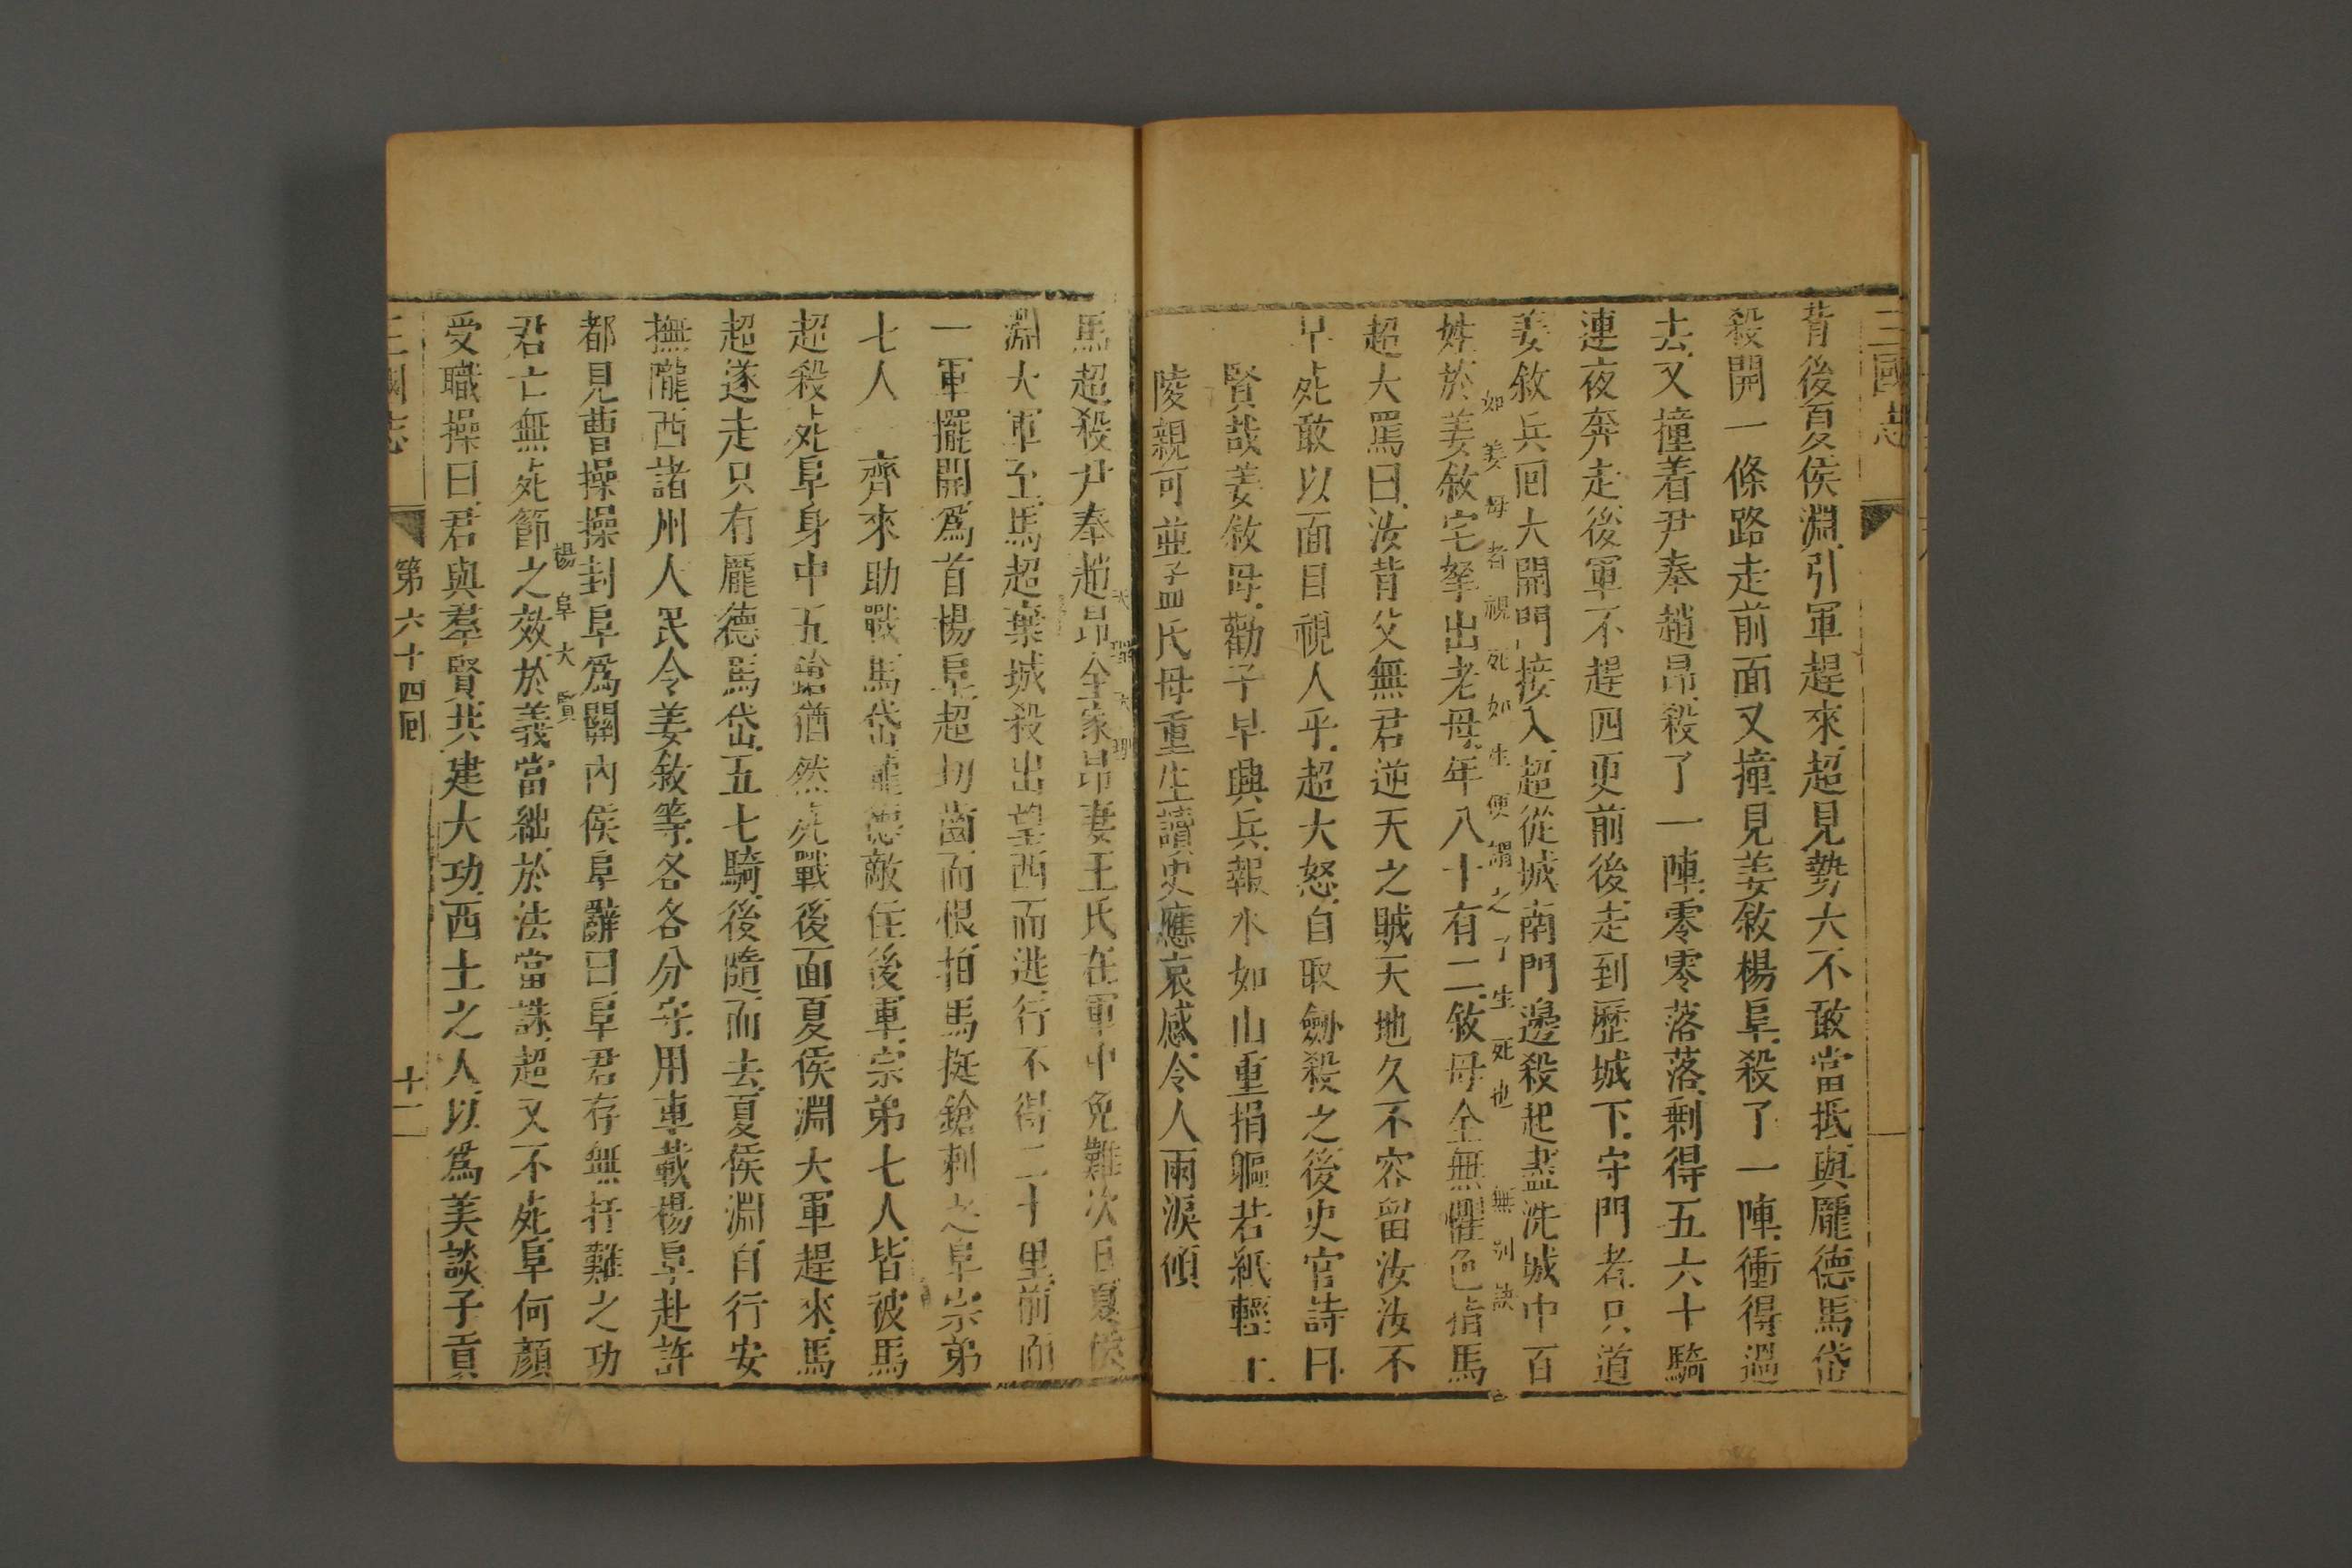 三國志
背後夏侯淵引軍趕來超見勢大不敢當抵與龐德馬岱
殺開一條路走前面又撞見姜敘楊阜殺了一陣衝得過
去又撞着尹奉趙昂殺了一陣零零落落剩得五六十騎
連夜奔走後軍不趕四更前後走到歷城下守門者只道
姜敘兵回大開門接入超從城南門邊殺起盡洗城中百
如姜母者視死如生便謂之了生死也 無別訣
姓於姜敘宅拏出老母年八十有二敘母全無懼色指馬
超大罵曰汝背父無君逆天之賊天地久不容留汝汝不
早死敢以面目視人乎超大怒自取劍殺之後史官詩曰
賢哉姜敘母勸子早興兵報水如山重捐軀若紙輕王
陵親可並子皿氏母重生讀史應哀感令人雨淚傾
馬超殺尹奉趙昂全家昂妻王氏在軍中免難次日夏侯
淵大軍至馬超棄城殺出望西而逃行不得二十里前面
一軍擺開爲首楊阜超切齒而恨拍馬挺鎗刺之阜宗弟
七人齊來助戰馬岱龐德敵住後軍宗弟七人皆被馬
超殺死阜身中五鎗猶然死戰後面夏侯淵大軍趕來馬
超遂走只有龐德馬岱五七騎後隨而去夏侯淵自行安
撫隴西諸州人民令姜敘等各各分守用車載楊阜赴許
都見曹操操封阜爲關內侯阜辭曰阜君存無扞難之功
楊阜大賢
君亡無死節之效於義當絀於法當誅超又不死阜何顏
受職操曰君與羣賢共建大功西土之人以爲美談子貢
三國志 第六十四回 十一